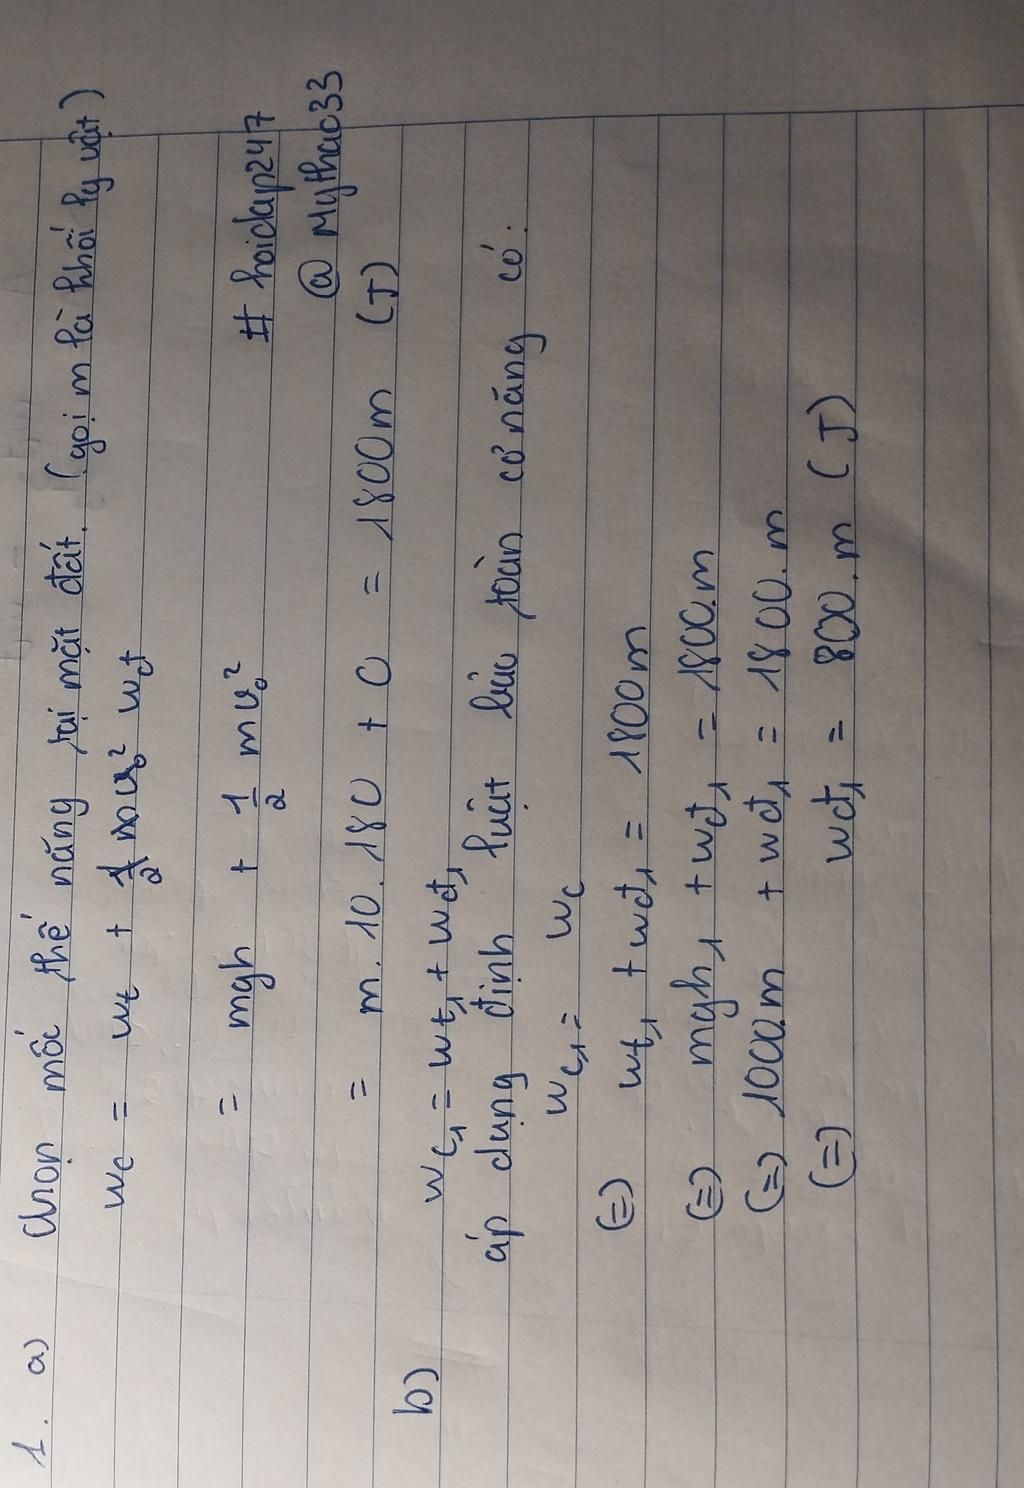 1. a) Chọn mốc thế năng tại mặt đất. (gọi m là khối lg vật)
Wc = Wt + Wđ
= mgh + 1/2 mv₀²
# hoidap247
@ Mythao33
= m. 10. 180 + 0 = 1800m (J)
b) Wc₁ = Wt₁ + Wđ₁
áp dụng định luật bảo toàn cơ năng có:
Wc₁ = Wc
(=) Wt₁ + Wđ₁ = 1800m
(=) mgh₁ + Wđ₁ = 1800.m
(=) 1000m + Wđ₁ = 1800.m
(=) Wđ₁ = 800.m (J)